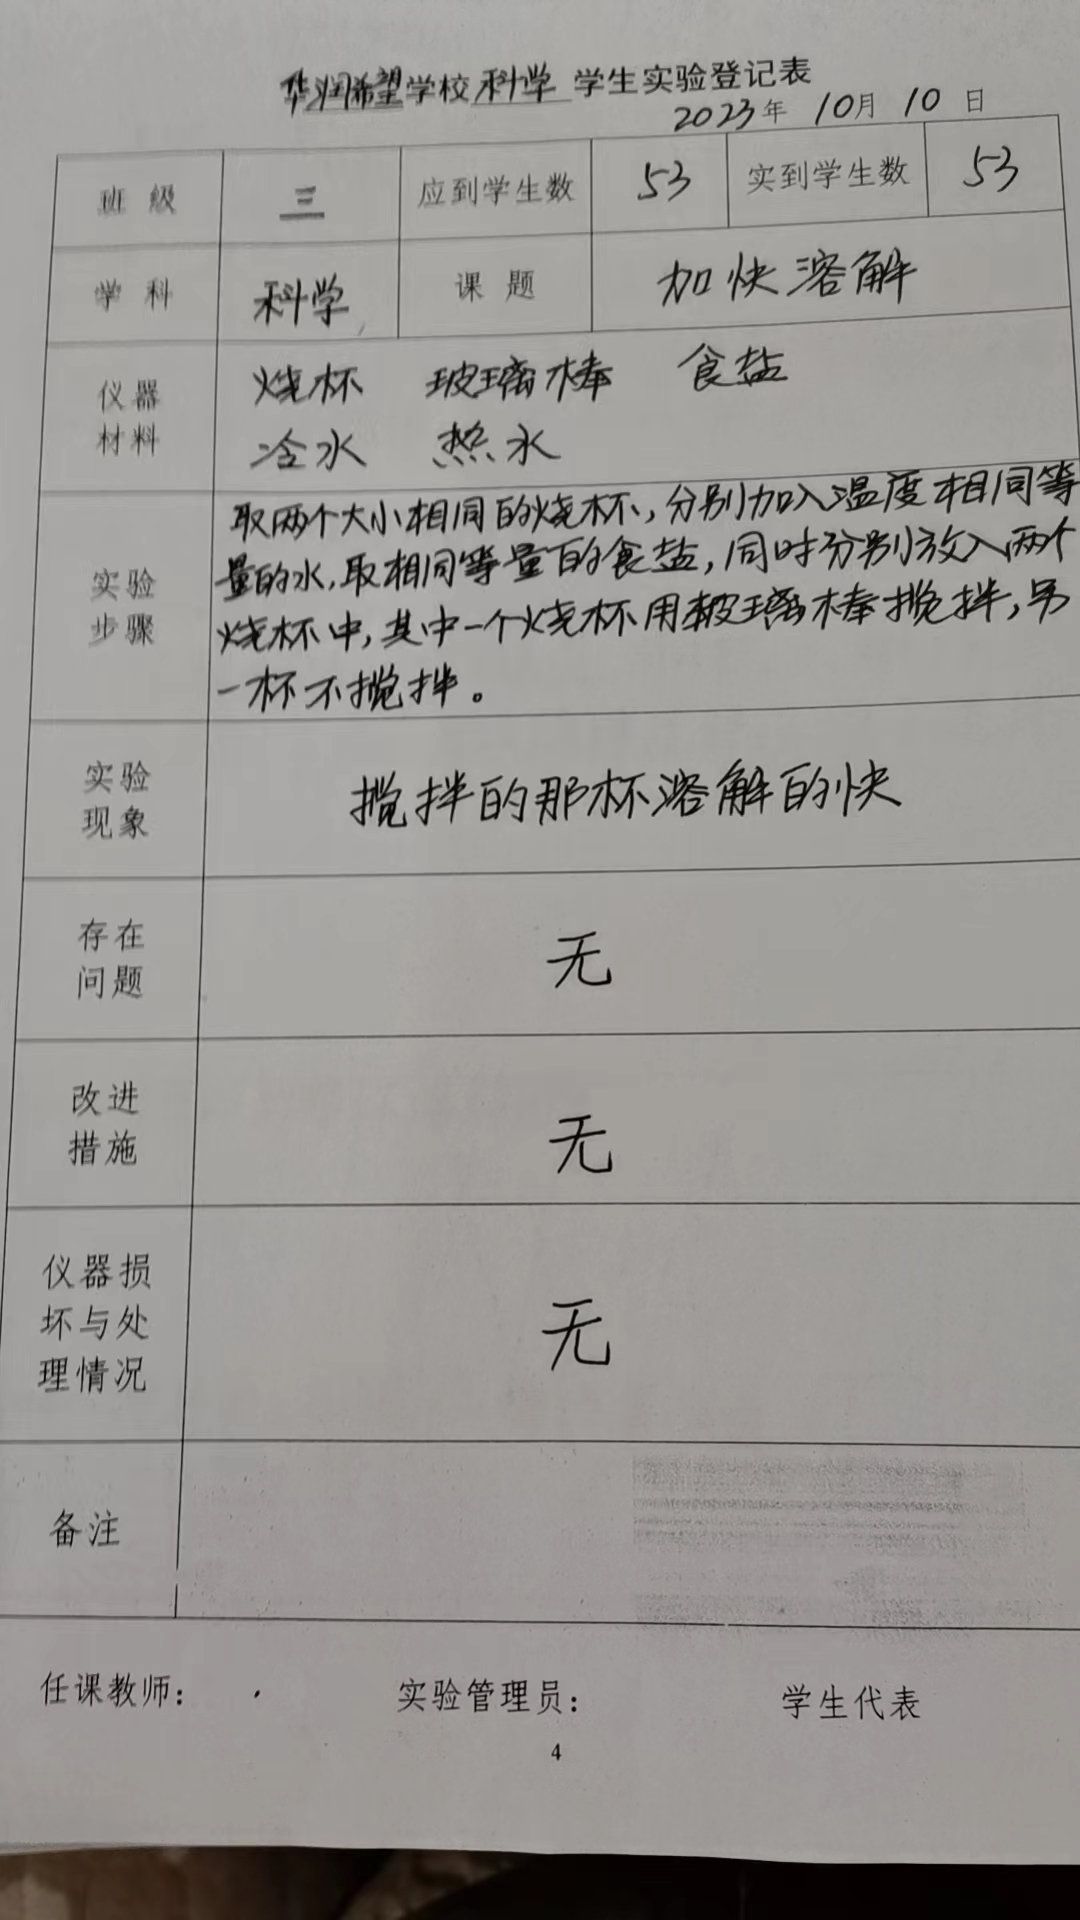 华润希望学校科学学生实验登记表
2023年 10月 10日
班级 三 应到学生数 53 实到学生数 53
学科 科学 课题 加快溶解
仪器
材料
烧杯 玻璃棒 食盐
冷水 热水
实验
步骤
取两个大小相同的烧杯,分别加入温度相同等
量的水,取相同等量的食盐,同时分别放入两个
烧杯中,其中一个烧杯用玻璃棒搅拌,另
一杯不搅拌。
实验
现象
搅拌的那杯溶解的快
存在
问题
无
改进
措施
无
仪器损
坏与处
理情况
无
备注
任课教师: 实验管理员: 学生代表
4